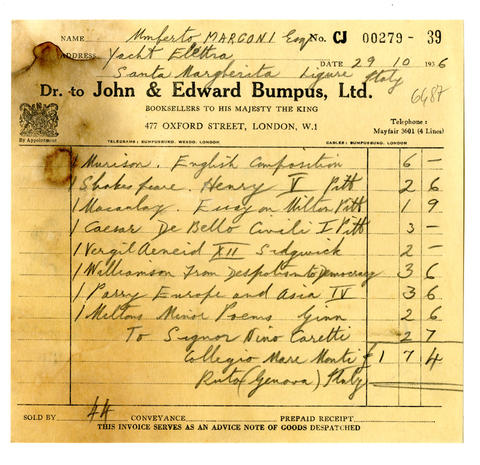 NAME Umberto MARCONI Esq No. CJ 00279 - 39
ADDRESS Yacht Elettra DATE 29 10 1936
Santa Margherita Ligure Italy
6487
Dr. to John & Edward Bumpus, Ltd.
BOOKSELLERS TO HIS MAJESTY THE KING
By Appointment
477 OXFORD STREET, LONDON, W.1
Telephone :
Mayfair 3601 (4 Lines)
TELEGRAMS : BUMPUSBURG, WESDO, LONDON CABLES : BUMPUSBURG, LONDON
1 Murison. English Composition 6 -
1 Shakespeare. Henry V Pitt 2 6
1 Macaulay. Essay on Milton Pitt 1 9
1 Caesar De Bello Civili I Pitt 3 -
1 Vergil Aeneid XII Sidgwick 2 -
1 Williamson From Despotism to Democracy 3 6
1 Parry Europe and Asia IV 3 6
1 Miltons Minor Poems Ginn 2 6
To Signor Dino Caretti 2 7
Collegio Mare Monti £ 1 7 4
Ruta (Genova) Italy
SOLD BY 44 CONVEYANCE PREPAID RECEIPT
THIS INVOICE SERVES AS AN ADVICE NOTE OF GOODS DESPATCHED